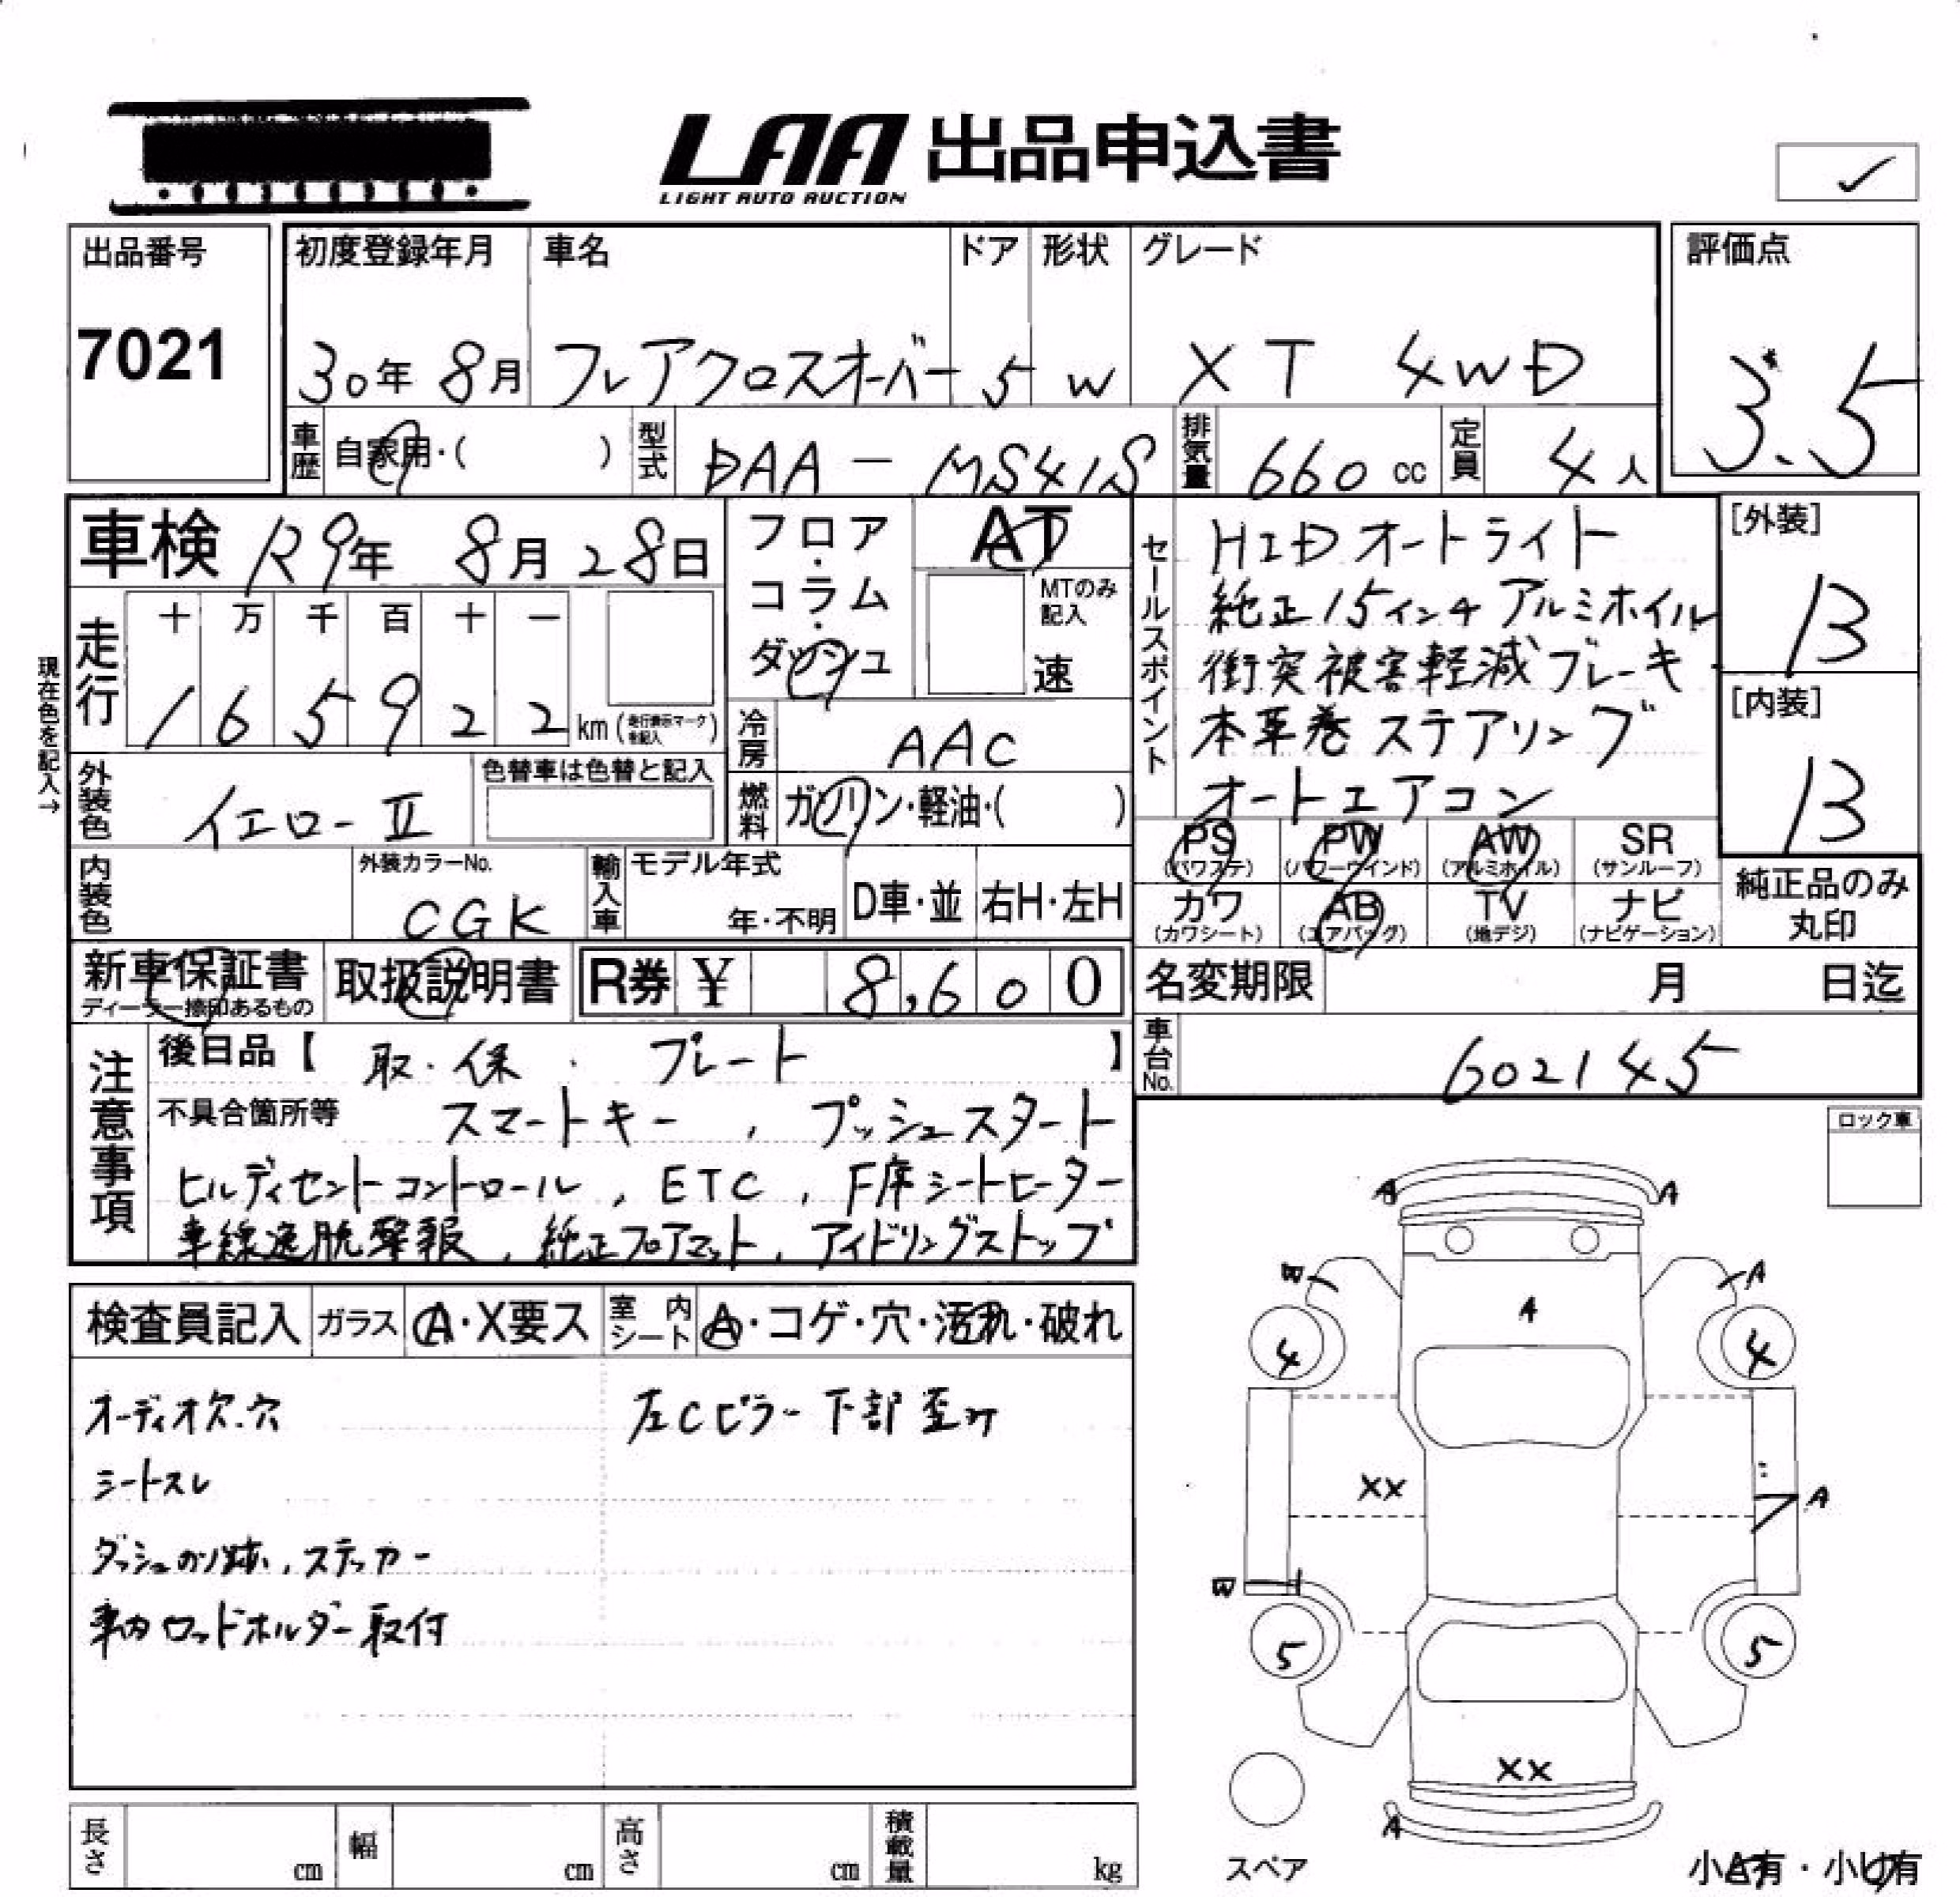 LAA 出品申込書
LIGHT AUTO AUCTION
✓
出品番号
7021
初度登録年月
30年 8月
車名
フレアクロスオーバー
ドア
5
形状
W
グレード
XT 4WD
評価点
3.5
車歴
自家用・( )
型式
DAA-MS41S
排気量
660 cc
定員
4人
車検 R9年 8月28日
フロア・コラム・ダッシュ
AT
MTのみ記入
速
現在色を記入→
走行
十 万 千 百 十 一
1 6 5 9 2 2 km (走行表示マークを記入)
冷房
AAC
燃料
ガソリン・軽油・( )
外装色
イエローⅡ
色替車は色替と記入
内装色
外装カラーNo.
CGK
輸入車
モデル年式
年・不明
D車・並
右H・左H
セールスポイント
HIDオートライト
純正15インチアルミホイル
衝突被害軽減ブレーキ
本革巻ステアリング
オートエアコン
[外装]
B
[内装]
B
PS (パワステ)
PW (パワーウインド)
AW (アルミホイル)
SR (サンルーフ)
カワ (カワシート)
AB (エアバッグ)
TV (地デジ)
ナビ (ナビゲーション)
純正品のみ丸印
新車保証書
ディーラー捺印あるもの
取扱説明書
R券 ¥ 8,600
名変期限 月 日迄
車台No.
602145
注意事項
後日品【 取・保・プレート 】
不具合箇所等 スマートキー, プッシュスタート
ヒルディセントコントロール, ETC, F席シートヒーター
車線逸脱警報, 純正フロアマット, アイドリングストップ
ロック車
検査員記入
ガラス
A・X要ス
室内シート
A・コゲ・穴・汚れ・破れ
オーディオ欠.穴
シートスレ
ダッシュのり跡, ステッカー
車内ロッドホルダー取付
左Cピラー下部歪み
A A
W A
A
4 4
XX
A
W
5 5
XX
A
スペア
小A有・小U有
長さ cm
幅 cm
高さ cm
積載量 kg